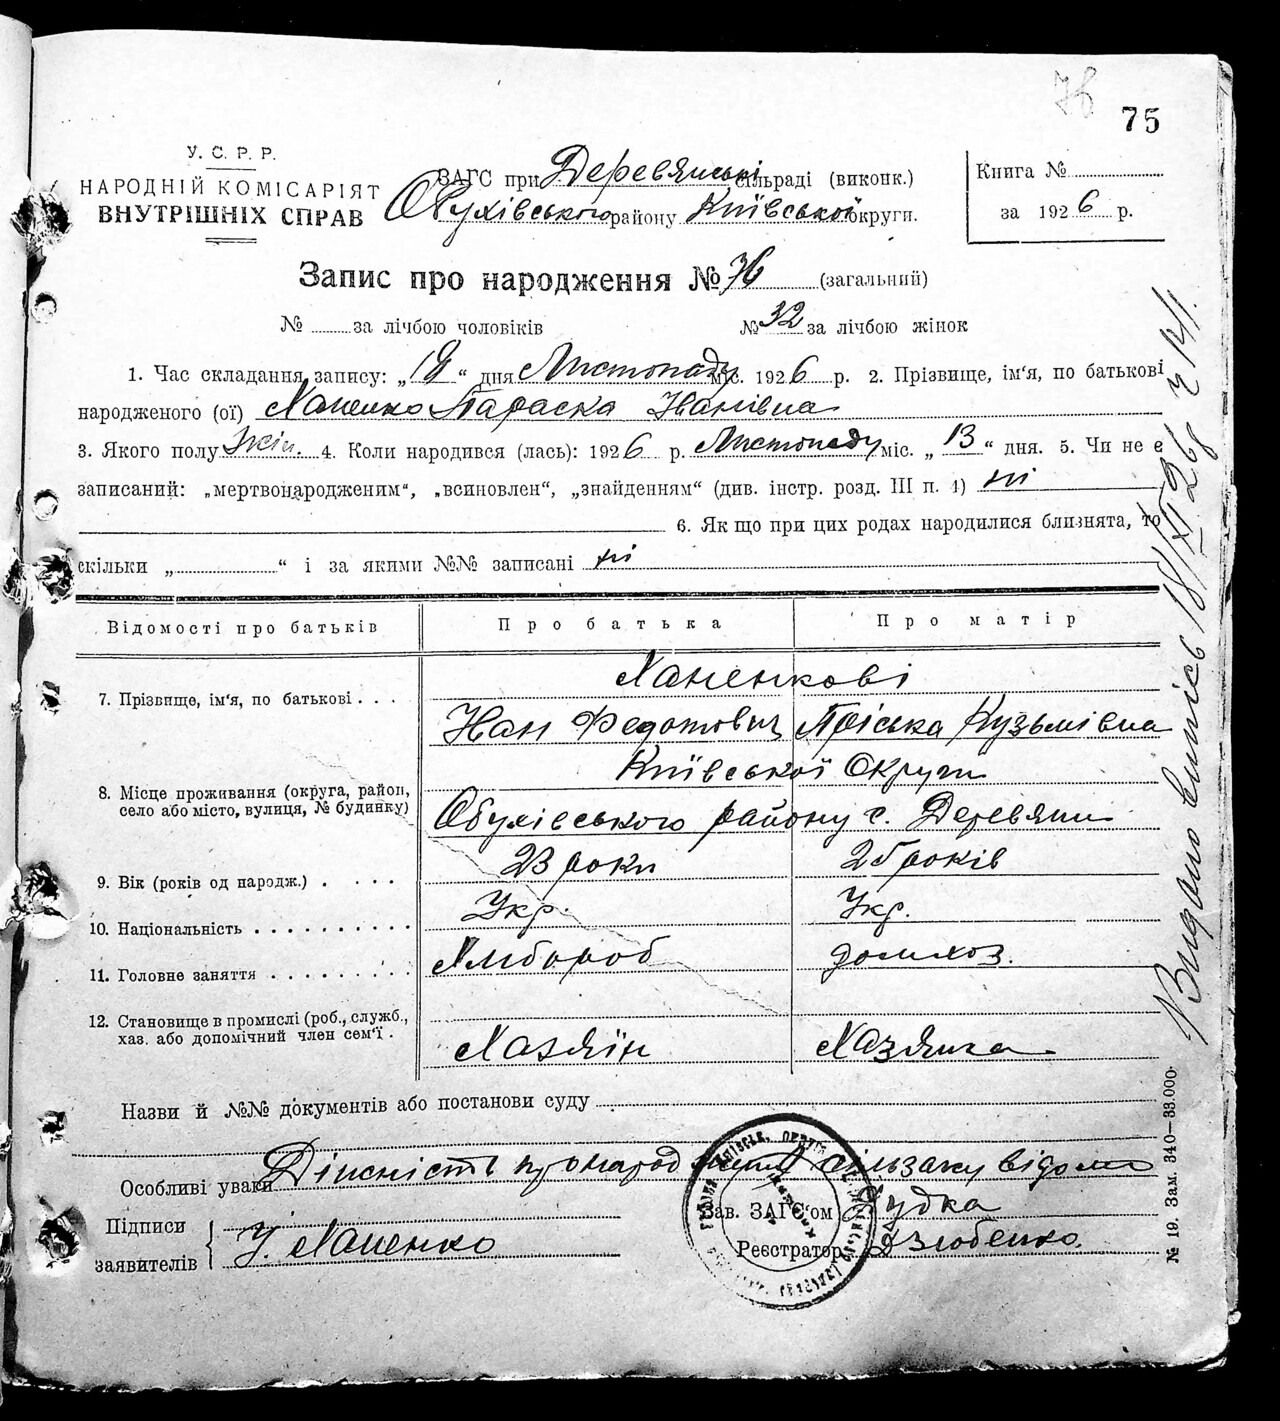 76
75
У. С. Р. Р.
НАРОДНІЙ КОМІСАРІЯТ
ВНУТРІШНІХ СПРАВ
ЗАГС при Деревянській сільраді (виконк.)
Обухівського району Київської округи.
Книга №
за 1926 р.
Запис про народження № 76 (загальний)
№ за лічбою чоловіків № 32 за лічбою жінок
1. Час складання запису: „18“ дня Листопаду міс. 1926 р. 2. Прізвище, ім'я, по батькові
народженого (ої) Ханенко Параска Іванівна
3. Якого полу жін. 4. Коли народився (лась): 1926 р. Листопаду міс. „13“ дня. 5. Чи не є
записаний: „мертвонародженим“, „всиновлен“, „знайденням“ (див. інстр. розд. III п. 4) ні
6. Як що при цих родах народилися близнята, то
скільки „ “ і за якими №№ записані ні
Відомості про батьків Про батька Про матір
Ханенкові
7. Прізвище, ім'я, по батькові . . . Іван Федотович Пріська Кузьмівна
Київської Округи
8. Місце проживання (округа, район,
село або місто, вулиця, № будинку) Обухівського району с. Деревяни
9. Вік (років од народж.) . . . . 23 роки 25 років
10. Національність . . . . . . . . . . Укр. Укр.
11. Головне заняття . . . . . . . . . Хлібороб домхоз.
12. Становище в промислі (роб., служб.,
хаз. або допомічний член сем'ї . Хазяїн Хазяйка
Назви й №№ документів або постанови суду
Особливі уваги Дійсність про народження сільзагсу відома
Підписи
заявителів І. Ханенко
Зав. ЗАГС'ом Дудка
Реєстратор Дзюбенко.
Видано випись 18/XI 26 р.
№ 19. Зам. 340—33.000.